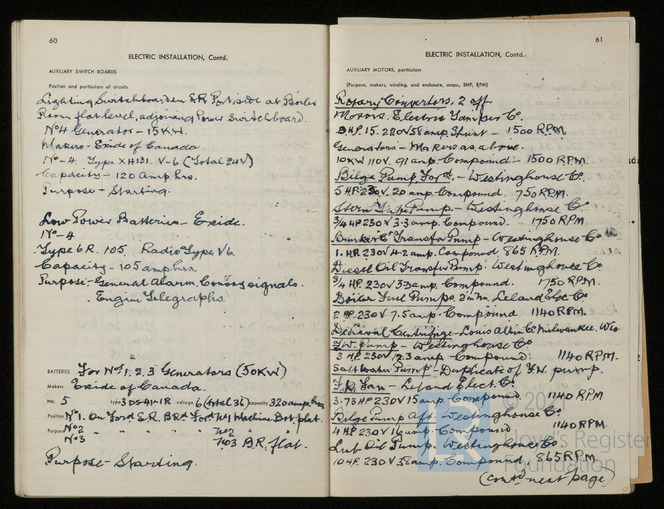 60
ELECTRIC INSTALLATION, Contd.
AUXILIARY SWITCH BOARDS
Position and particulars of circuits
Lighting Switchboard in E.R. Port side at Boiler
Room flat level, adjoining Power switchboard.
No 4 Generator - 15 KW.
Makers - Exide of Canada
No - 4. Type XH131. V-6 (Total 24V)
Capacity - 120 amp hrs.
Purpose - Starting.
Low Power Batteries - Exide.
No - 4
Type 6R. 105. Radio Type V6
Capacity - 105 amp hrs
Purpose - General Alarm, Convoy signals.
Engine Telegraphs
BATTERIES For Nos 1, 2, 3 Generators (30KW)
Makers Exide of Canada.
No. 5 type voltage 6 (total 36) capacity 320 amp hrs
Position No 1. On Ford E.R. Ford No 1 Machine flat.
Purpose No 2 " " " No 2 "
No 3 No 3 B.R. flat.
Purpose - Starting.
61
ELECTRIC INSTALLATION, Contd.
AUXILIARY MOTORS, particulars
(Purpose, makers, winding, and enclosure, amps., BHP, RPM)
Rotary Convertors, 2 off
Motors. Electric Co.
BHP. 15. 220V 58 amp Shunt - 1500 RPM.
Generators - Makers as above.
10KW 110V. 91 amp. Compound - 1500 RPM.
Bilge Pump Ford. - Westinghouse Co.
5 HP. 230V. 20 amp. Compound. 750 RPM.
Stern Pump - Westinghouse Co
3/4 HP 230V 3.3 amp. Compound. 1750 RPM
Bunker C Transfer Pump - Westinghouse Co
Compound. 865 RPM.
Diesel Oil Transfer Pump. Westinghouse Co
3/4 HP. 230V 3.3 amp. Compound. 1750 RPM.
Boiler Fuel Pumps 2 in no. Leland Elec Co
HP 230V 7.5 amp. Compound 1140 RPM.
DeLaval Centrifuge - Louis Allis Co Milwaukee. Wis
F.W. Pump - Westinghouse Co
3 HP. 230V 12.3 amp. Compound. 1140 RPM.
Salt water Pump - Duplicate of F.W. pump.
Fan - Leland Elect. Co.
230V 15 amp. Compound 1140 RPM
Bilge Pump Aft. Westinghouse Co
4 HP. 230V 16 amp. Compound. 1140 RPM.
Lub Oil Pump. Westinghouse Co
10 HP. 230V 38 amp. Compound. 865 RPM.
(contd next page)
© 20
Lloyd's Register
Foundation